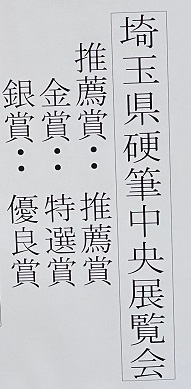 埼玉県硬筆中央展覧会
推薦賞：推薦賞
金賞：特選賞
銀賞：優良賞